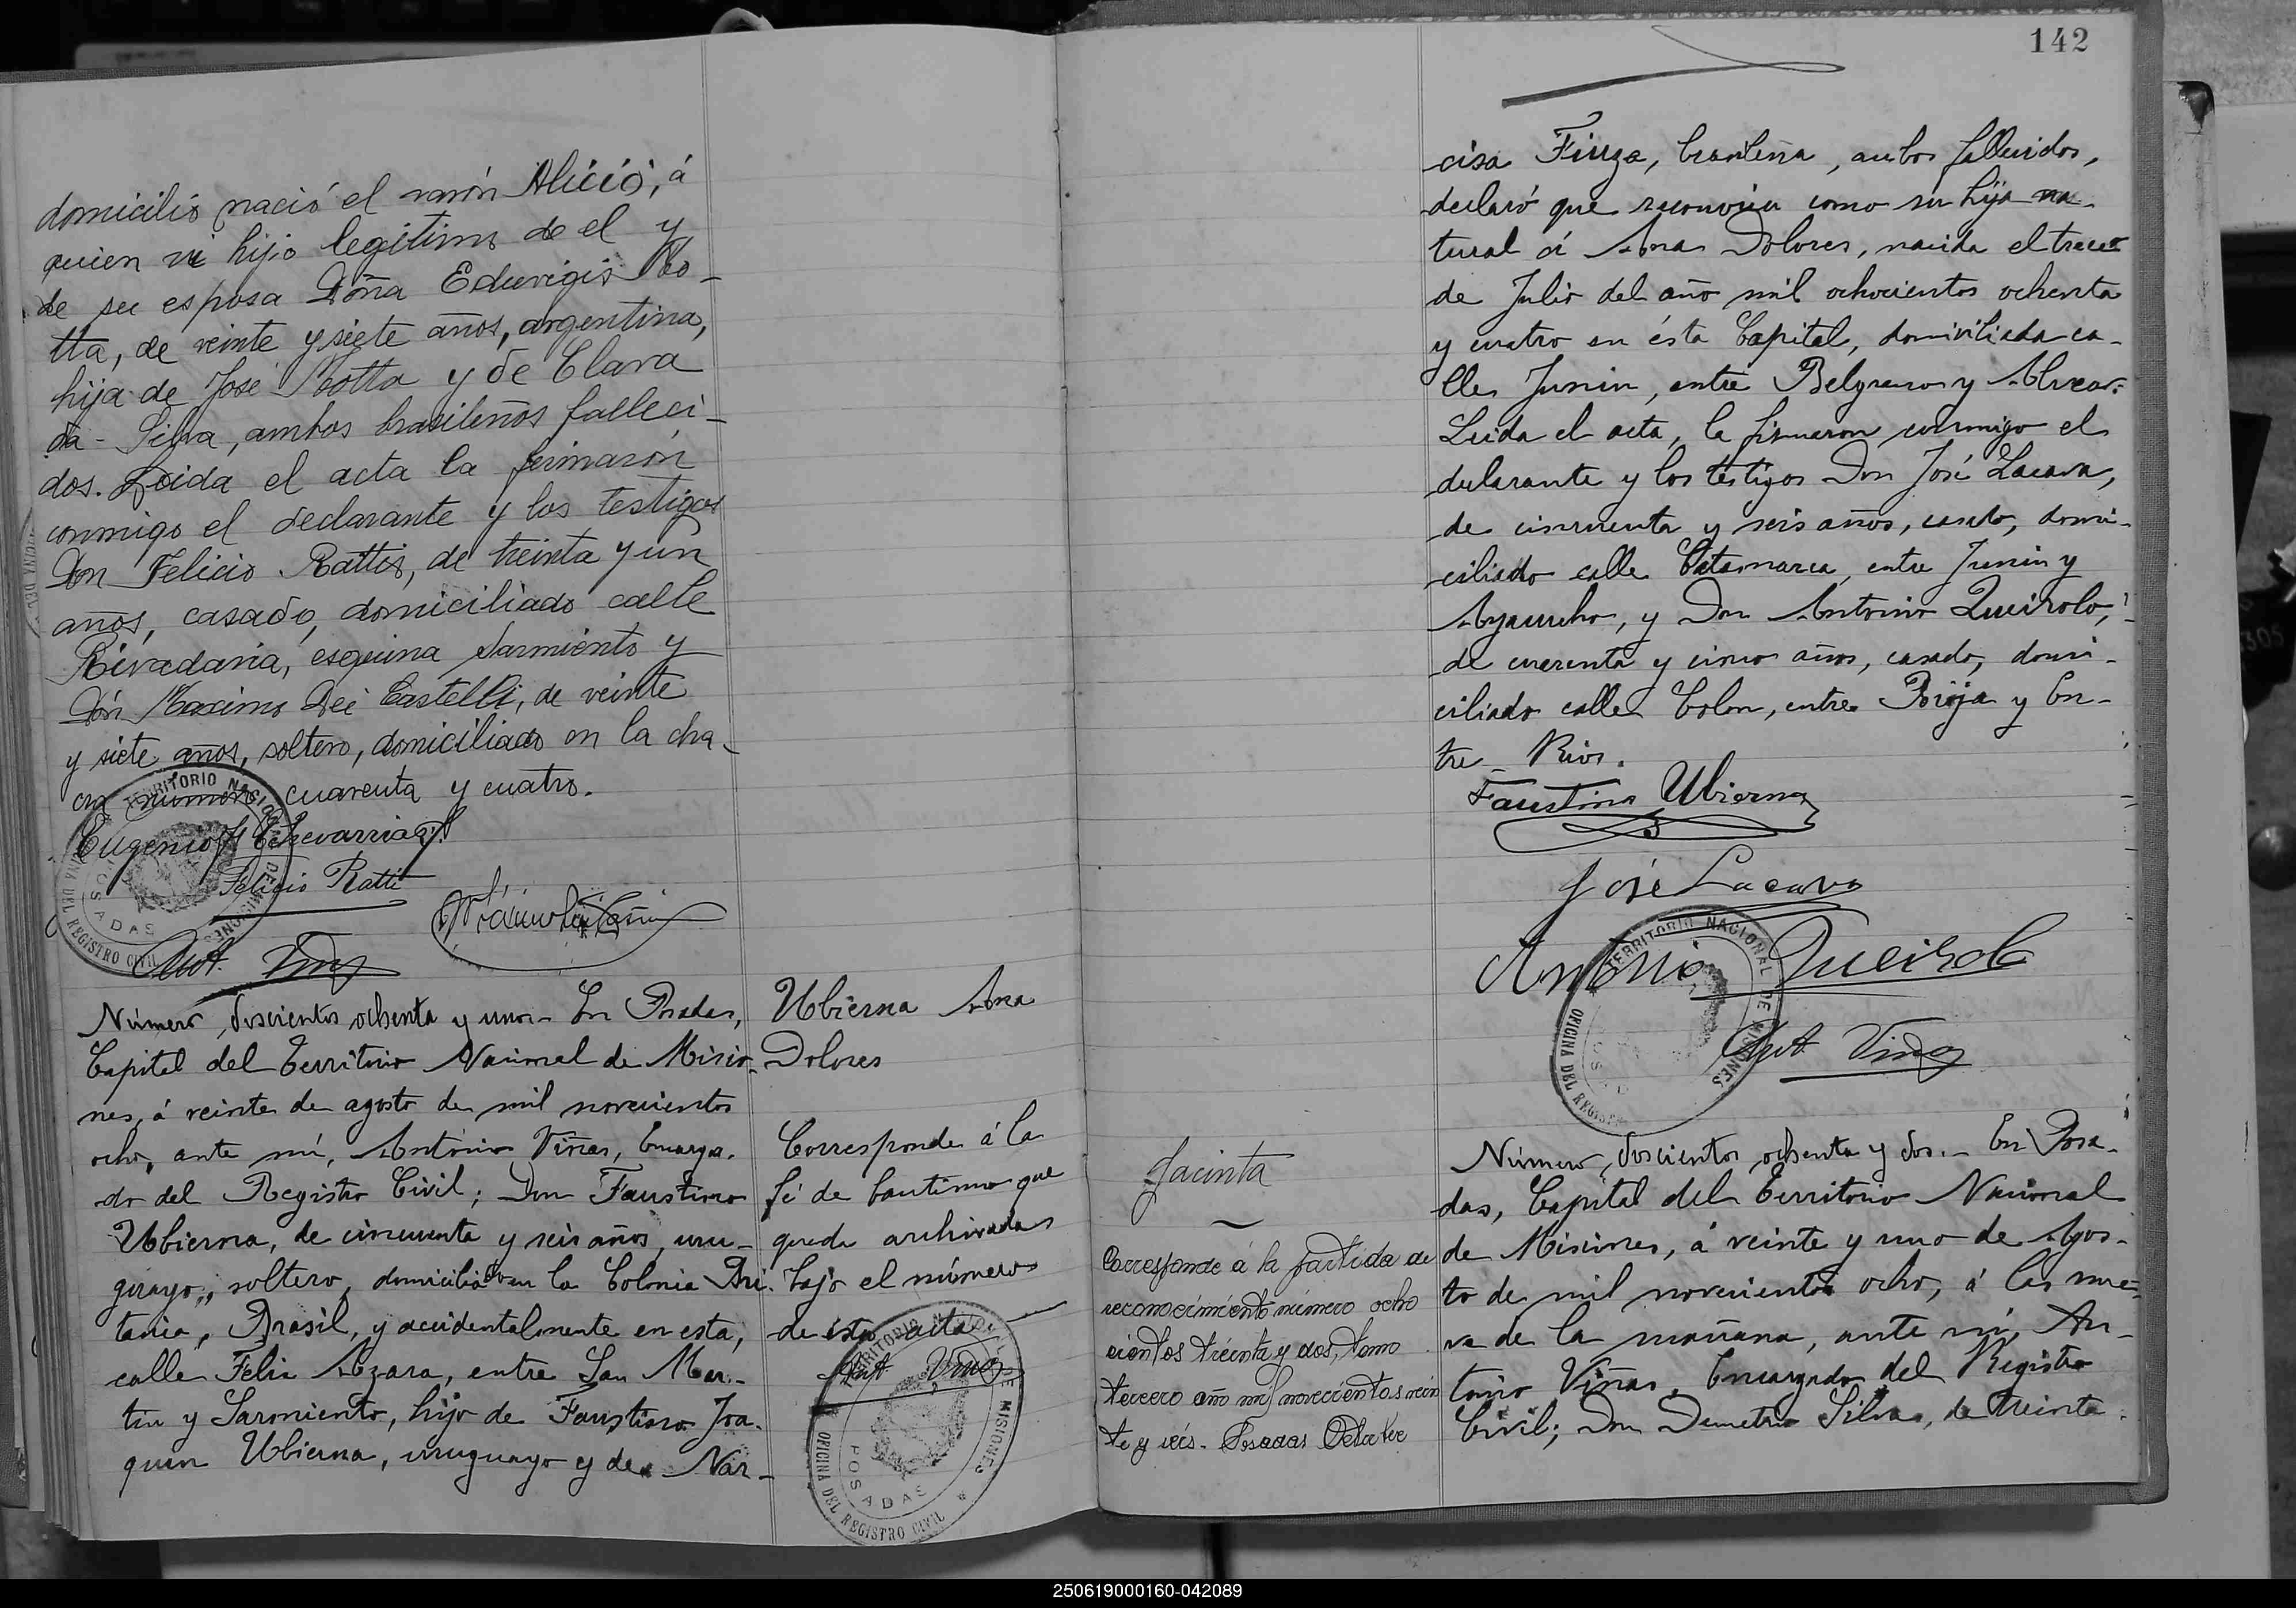 domicilio nació el varón Alicio, á
quien vi hijo legitimo de el y
de su esposa Doña Eduvigis Mo-
tta, de veinte y siete años, argentina,
hija de José Motta y de Clara
da - Silva, ambos brasileños falleci-
dos. Leida el acta la firmarón
conmigo el declarante y los testigos
Don Felicio Rattis, de treinta y un
años, casado, domiciliado calle
Rivadavia, esquina Sarmiento y
Dón Maximo Dei Castelli, de veinte
y siete años, soltero, domiciliado en la cha-
cra numero cuarenta y cuatro.
Eugenio Echevarria
Felicio Ratti
Ant. Viñas
TERRITORIO NACIONAL DE MISIONES
OFICINA DEL REGISTRO CIVIL
POSADAS
Número doscientos ochenta y uno - En Posadas,
Capital del Territorio Nacional de Misio-
nes, á veinte de agosto de mil novecientos
ocho, ante mí, Antonio Viñas, Encarga-
do del Registro Civil; Don Faustino
Ubierna, de cincuenta y seis años, uru-
guayo, soltero, domiciliado en la Colonia Bri-
tania, Brasil, y accidentalmente en esta,
calle Felix Azara, entre San Mar-
tin y Sarmiento, hijo de Faustino Joa-
quin Ubierna, uruguayo y de Nar-
Ubierna Ana
Dolores
Corresponde á la
fé de bautismo que
queda archivada
bajo el número
de ésta acta
Ant Viñas
TERRITORIO NACIONAL DE MISIONES
OFICINA DEL REGISTRO CIVIL
POSADAS
142
cisa Fiuza, brasileña, ambos fallecidos,
declaró que reconocía como su hija na-
tural á Ana Dolores, nacida el trece
de Julio del año mil ochocientos ochenta
y cuatro en ésta Capital, domiciliada ca-
lle Junin, entre Belgrano y Alvear.
Leida el acta, la firmaron conmigo el
declarante y los testigos Don José Lacava,
de cincuenta y seis años, casado, domi-
ciliado calle Catamarca, entre Junin y
Ayacucho, y Don Antonio Queirolo,
de cuarenta y cinco años, casado, domi-
ciliado calle Colon, entre Rioja y En-
tre Rios.
Faustino Ubierna
José Lacava
Antonio Queirolo
Ant Viñas
TERRITORIO NACIONAL DE MISIONES
OFICINA DEL REGISTRO
Jacinta
Corresponde á la partida de
reconocimiento número ocho
cientos treinta y dos, tomo
tercero año mil novecientos vein
te y seis. Posadas Octubre
Número doscientos ochenta y dos. - En Posa-
das, Capital del Territorio Nacional
de Misiones, á veinte y uno de Agos-
to de mil novecientos ocho, á las nue-
ve de la mañana, ante mí, An-
tonio Viñas, Encargado del Registro
Civil; Don Demetrio Silva, de treinta
250619000160-042089